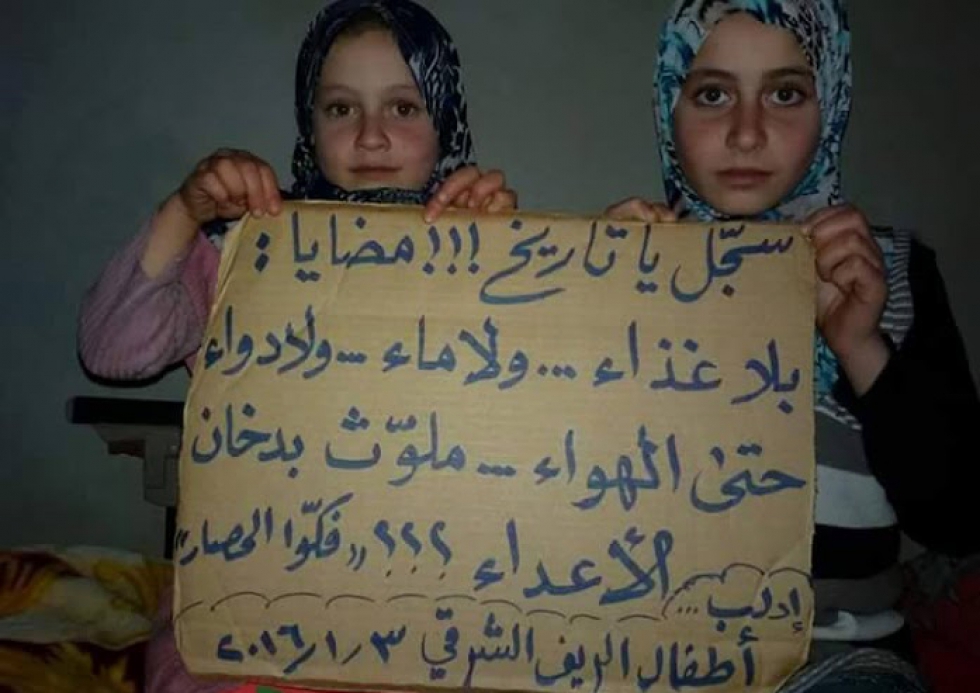 سجّل يا تاريخ !!! مضايا :
بلا غذاء ... ولا ماء ... ولا دواء
حتى الهواء ... ملوّث بدخان
الأعداء ؟؟؟ "فكّوا الحصار"
إدلب ...
أطفال الريف الشرقي ٢٠١٦/١/٣